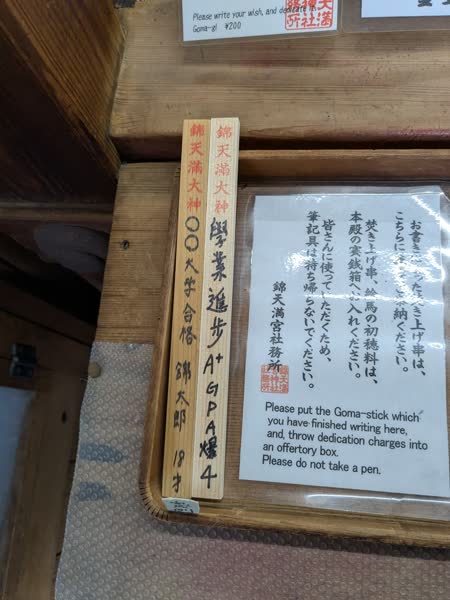 Please write your wish, and dedicate
Goma-gi ¥200
錦天満大神 學業進步 A+ GPA爆4
錦天満大神 〇〇大学合格 錦太郎 18才
お書きになった焚き上げ串は、
こちらに 納ください。
焚き上げ串、絵馬の初穂料は、
本殿の賽銭箱へお入れください。
皆さんに使っていただくため、
筆記具は持ち帰らないでください。
錦天満宮社務所
Please put the Goma-stick which
you have finished writing here,
and, throw dedication charges into
an offertory box.
Please do not take a pen.